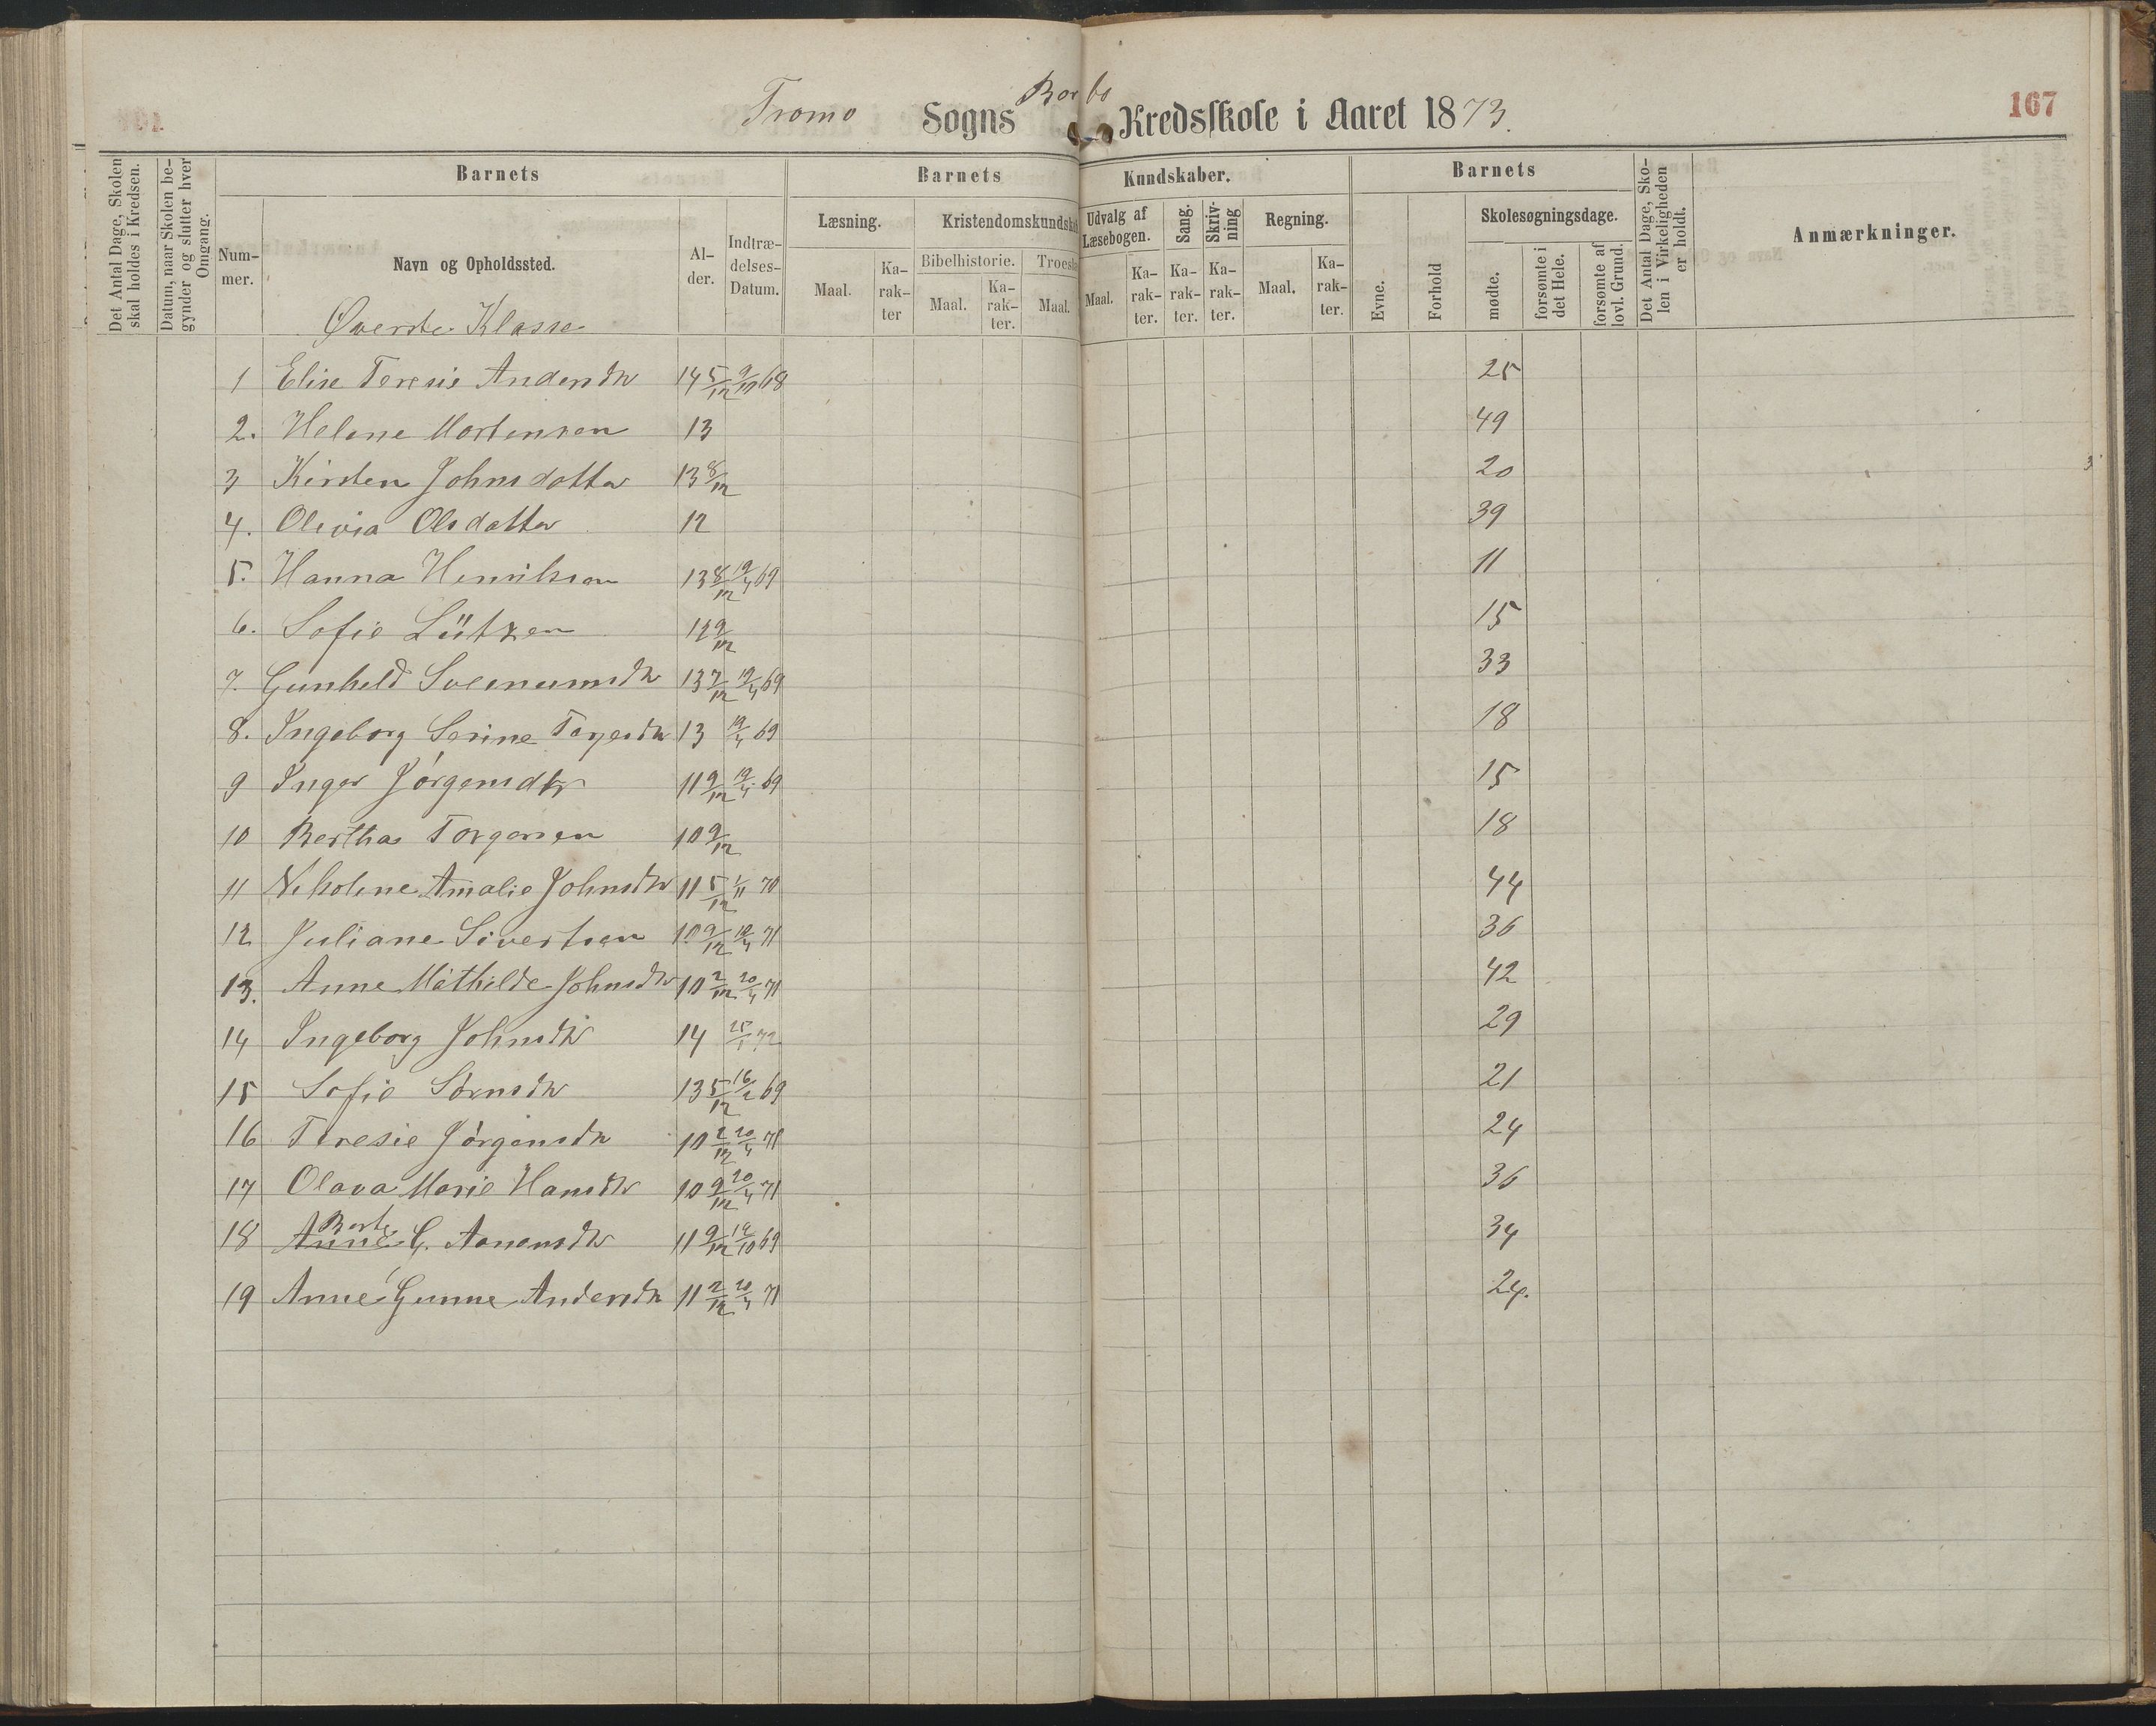 Tromø Sogns Barbo Kredsskole i Aaret 1873.
167
Det Antal Dage, Skolen skal holdes i Kredsen.
Datum, naar Skolen begynder og slutter hver Omgang.
Barnets
Barnets Kundskaber.
Barnets
Det Antal Dage, Skolen i Virkeligheden er holdt.
Anmærkninger.
Nummer.
Navn og Opholdssted.
Alder.
Indtrædelses-Datum.
Læsning.
Kristendomskundska
Udvalg af Læsebogen.
Sang.
Skrivning
Regning.
Skolesøgningsdage.
Bibelhistorie.
Troesl
Maal. Karakter
Maal. Karakter.
Maal.
Maal. Karakter.
Karakter.
Karakter.
Maal. Karakter.
Evne.
Forhold
mødte.
forsømte i det Hele.
forsømte af lovl. Grund.
Øverste Klasse
1 Elise Teresie Andersdtr 14 5/12 9/10 68 25
2. Helene Mortensen 13 49
3 Kirsten Johnsdatter 13 8/12 20
4. Olivia Olsdatter 12 39
5. Hanna Henriksen 13 8/12 19/4 69 11
6. Sofie Lützen 12 9/12 15
7. Gunhild Sveinumsdtr 13 7/12 19/4 69 33
8. Ingeborg Serine Torjesdtr 13 19/4 69 18
9 Inger Jørgensdtr 11 9/12 19/4 69 15
10 Berthe Torgersen 10 9/12 18
11 Nikoline Amalie Johnsdtr 11 5/12 1/11 70 44
12 Juliane Sivertsen 10 9/12 19/4 71 36
13. Anne Mathilde Johnsdtr 10 2/12 20/4 71 42
14 Ingeborg Johnsdtr 14 25/1 72 29
15 Sofie Sørnsdtr 13 5/12 16/2 69 21
16 Teresie Jørgensdtr 10 2/12 20/4 71 24
17 Olava Marie Hansdtr 10 9/12 20/4 71 36
18 Anne Berte G. Aanensdtr 11 9/12 19/10 69 34
19 Anne Gunne Andersdtr 11 2/12 20/4 71 24.